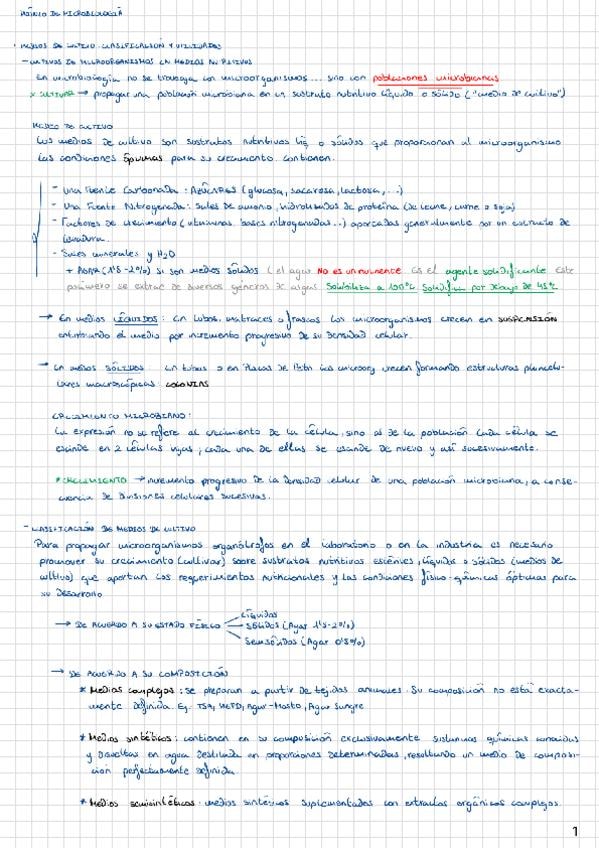 MÓDULO DE MICROBIOLOGÍA
· MEDIOS DE CULTIVO: CLASIFICACIÓN Y UTILIDADES
- CULTIVOS DE MICROORGANISMOS EN MEDIOS NUTRITIVOS
En microbiología no se trabaja con microorganismos... sino con poblaciones microbianas
* CULTIVAR → propagar una población microbiana en un sustrato nutritivo líquido o sólido ("medio de cultivo")
MEDIO DE CULTIVO
Los medios de cultivo son sustratos nutritivos líq o sólidos que proporcionan al microorganismo
las condiciones óptimas para su crecimiento. Contienen:
- Una Fuente Carbonada: AZÚCARES (glucosa, sacarosa, lactosa, ...)
- Una Fuente Nitrogenada: Sales de amonio, hidrolizados de proteína (de leche, carne o soja)
- Factores de crecimiento (vitaminas, bases nitrogenadas..) aportadas generalmente por un extracto de
levadura.
- Sales minerales y H2O
+ AGAR (1'5-2%) si son medios sólidos (el agar NO es un nutriente. Es el agente solidificante. Este
polímero se extrae de diversos géneros de algas. Solubiliza a 100ºC. Solidifica por debajo de 45ºC
→ En medios LÍQUIDOS: En tubos, matraces o frascos los microorganismos crecen en SUSPENSIÓN
enturbiando el medio por incremento progresivo de su densidad celular.
→ En medios SÓLIDOS: En tubos o en Placas de Petri los microorg crecen formando estructuras pluricelu-
lares macroscópicas: COLONIAS
CRECIMIENTO MICROBIANO:
La expresión no se refiere al crecimiento de la célula, sino al de la población. Cada célula se
escinde en 2 células hijas; cada una de ellas se escinde de nuevo y así sucesivamente.
* CRECIMIENTO → incremento progresivo de la densidad celular de una población microbiana, a conse-
cuencia de divisiones celulares sucesivas.
- CLASIFICACIÓN DE MEDIOS DE CULTIVO
Para propagar microorganismos organótrofos en el laboratorio o en la industria es necesario
promover su crecimiento (cultivar) sobre sustratos nutritivos estériles, líquidos o sólidos (medios de
cultivo) que aportan los requerimientos nutricionales y las condiciones físico-químicas óptimas para
su desarrollo
→ DE ACUERDO A SU ESTADO FÍSICO
Líquidos
Sólidos (Agar 1'5-2%)
Semisólidos (Agar 0'5%)
→ DE ACUERDO A SU COMPOSICIÓN
* Medios complejos: se preparan a partir de tejidos animales. Su composición no está exacta-
mente definida. Ej. TSA, Agar-Mosto, Agar Sangre
* Medios sintéticos: contienen en su composición exclusivamente sustancias químicas conocidas
y disueltas en agua destilada en proporciones determinadas, resultando un medio de composi-
ción perfectamente definida.
* Medios semisintéticos: medios sintéticos suplementados con extractos orgánicos complejos.
1